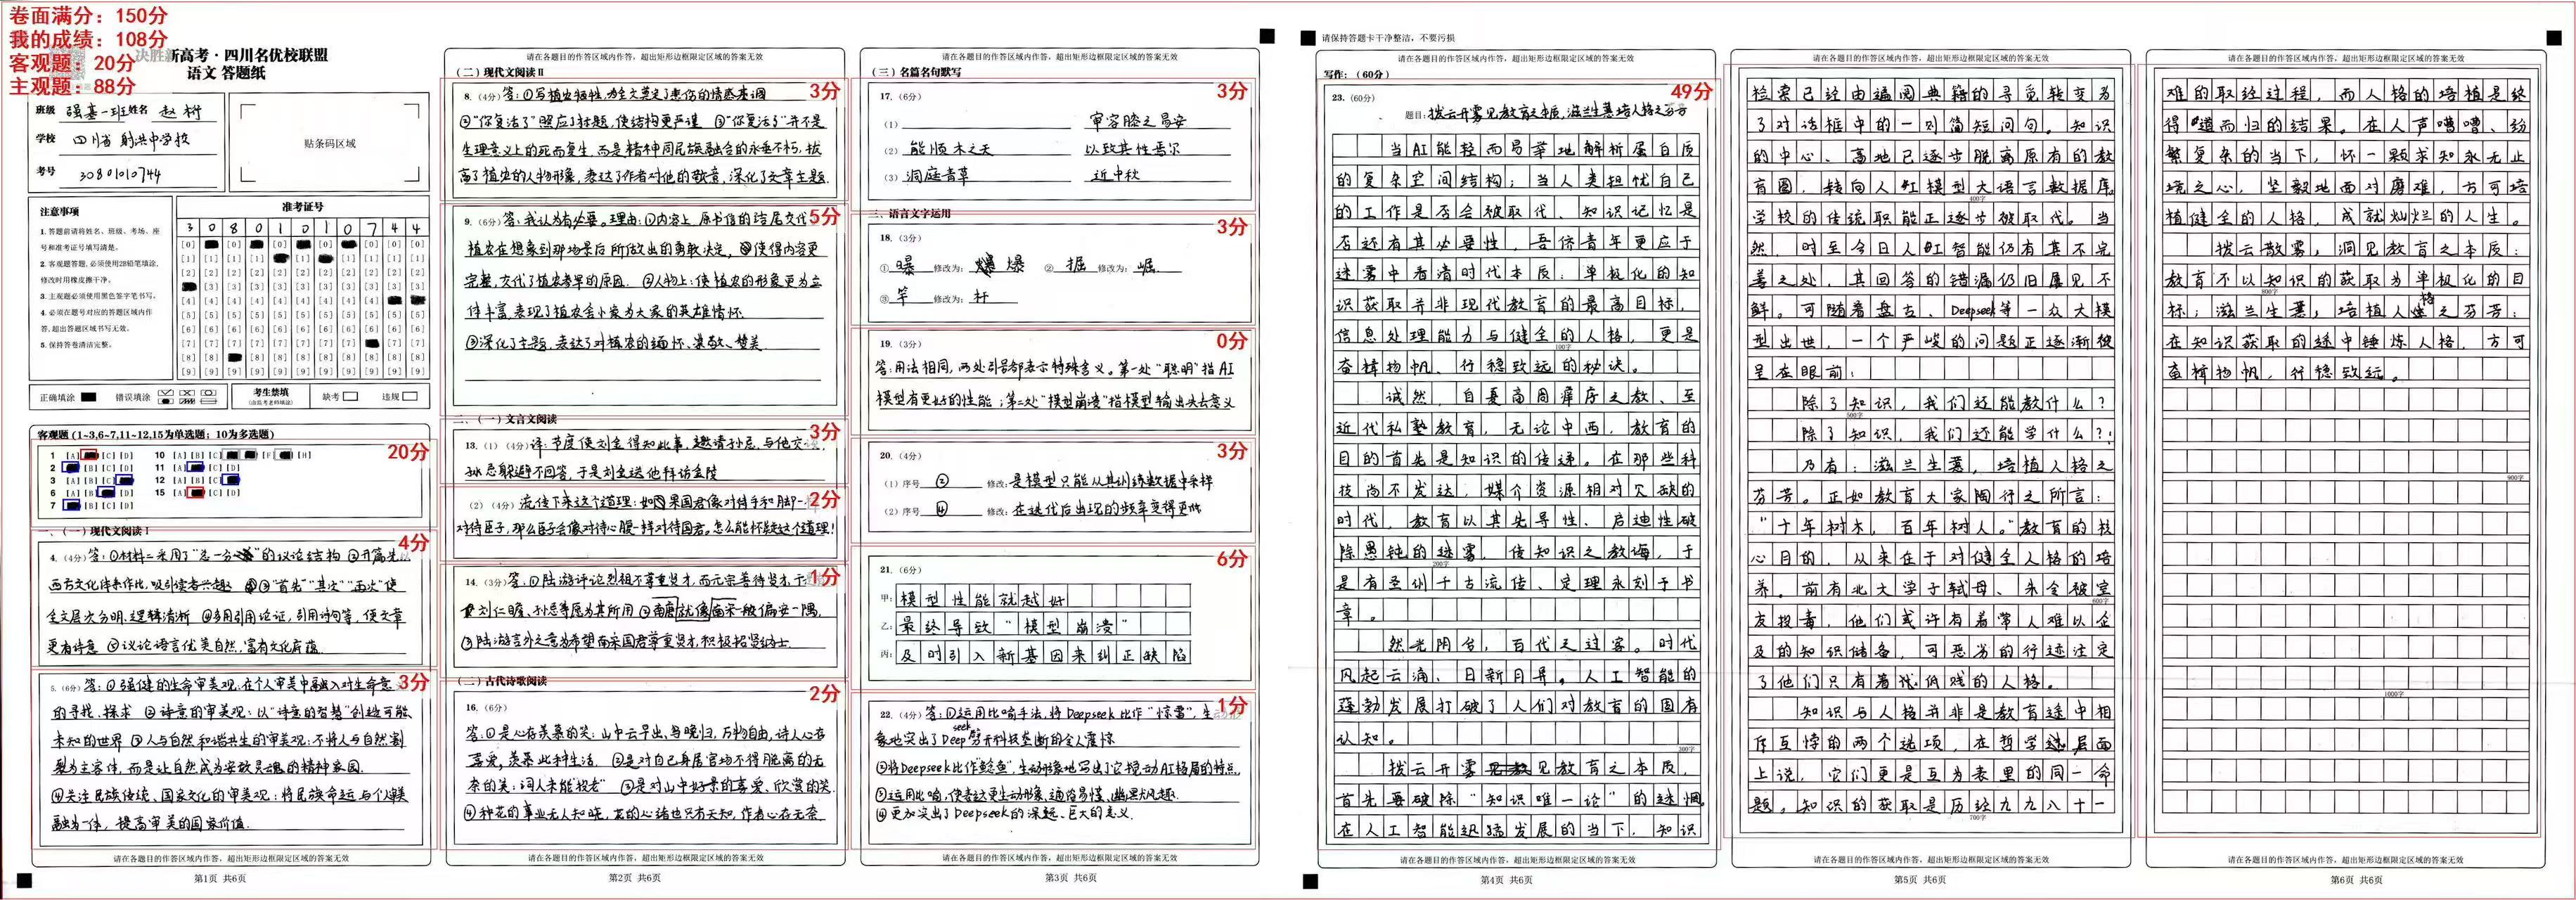 卷面满分：150分
我的成绩：108分
客观题：20分
主观题：88分
决胜新高考·四川名优校联盟
语文 答题纸
班级 强基一班 姓名 赵树
学校 四川省射洪中学校
考号 30801010744
贴条码区域
注意事项
1. 答题前请将姓名、班级、考场、座号和准考证号填写清楚。
2. 客观题答题，必须使用2B铅笔填涂，修改时用橡皮擦干净。
3. 主观题必须使用黑色签字笔书写。
4. 必须在题号对应的答题区域内作答，超出答题区域书写无效。
5. 保持答卷清洁完整。
准考证号
3 0 8 0 1 0 1 0 7 4 4
正确填涂 错误填涂
考生禁填 缺考 违规
客观题 (1~3,6~7,11~12,15为单选题；10为多选题)
20分
一、(一) 现代文阅读 I
4分
4. (4分) 答：①材料二采用了“总一分”的议论结构 ②开篇先以
西方文化体系作比，吸引读者兴趣 ③“首先”“其次”“再次”使
全文层次分明，逻辑清晰 ④多用引用论证，引用诗句等，使文章
更有诗意 ⑤议论语言优美自然，富有文化底蕴
3分
5. (6分) 答：①强健的生命审美观：在个人审美中融入对生命意
的寻找、探求 ②诗意的审美观：以“诗意的智慧”创造可能、
未知的世界 ③人与自然和谐共生的审美观：不将人与自然割
裂为主客体，而是让自然成为安放灵魂的精神家园.
④关注民族传统、国家文化的审美观：将民族命运与个人审美
融为一体，提高审美的国家价值.
请在各题目的作答区域内作答，超出矩形边框限定区域的答案无效
第1页 共6页
请在各题目的作答区域内作答，超出矩形边框限定区域的答案无效
(二) 现代文阅读 II
3分
8. (4分) 答：①写植安牺牲，为全文奠定了悲伤的情感基调
②“你复活了”照应了标题，使结构更严谨 ③“你复活了”并不是
生理意义上的死而复生，而是精神同民族融合的永垂不朽，拔
高了植安的人物形象，表达了作者对他的敬意，深化了文章主题.
5分
9. (6分) 答：我认为有必要。理由：①内容上，原书信的结尾交代
植安在想象到那场景后所做出的勇敢决定，使得内容更
完整，交代了植安参军的原因. ②人物上：使植安的形象更为立
体丰富，表现了植安舍小家为大家的英雄情怀.
③深化了主题，表达了对植安的缅怀、崇敬、赞美.
二、(一) 文言文阅读
3分
13. (1) (4分) 译：节度使刘金得知此事，邀请孙忌，与他交谈，
孙忌躲避不回答，于是刘金送他拜访金陵
2分
(2) (4分) 流传下来这个道理：如果国君像对待手和脚一样
对待臣子，那么臣子会像对待心腹一样对待国君。怎么能怀疑这个道理！
1分
14. (3分) 答：①陆游评论烈祖不尊重贤才，而元宗善待贤才，于
是刘仁瞻、孙忌等愿为其所用 ②南唐就像南宋一般偏安一隅，
③陆游言外之意为希望南宋国君尊重贤才，积极招贤纳士.
(二) 古代诗歌阅读
2分
16. (6分)
答：①是心存羡慕的笑：山中云早出、鸟晚归，万物自由，诗人心存
喜爱，羡慕此种生活. ②是对自己身居官场不得脱离的无
奈的笑：词人未能“投老” ③是对山中好景的喜爱、欣赏的笑.
④种花的事业无人知晓，花的心绪也只有天知，作者心存无奈
请在各题目的作答区域内作答，超出矩形边框限定区域的答案无效
第2页 共6页
请在各题目的作答区域内作答，超出矩形边框限定区域的答案无效
(三) 名篇名句默写
3分
17. (6分)
(1) 审容膝之易安
(2) 能顺木之天 以致其性焉尔
(3) 洞庭青草 近中秋
三、语言文字运用
3分
18. (3分)
① 曝 修改为： 爆 ② 掘 修改为： 崛
③ 竿 修改为： 杆
0分
19. (3分)
答：用法相同，两处引号都表示特殊含义。第一处“聪明”指AI
模型有更好的性能；第二处“模型崩溃”指模型输出失去意义
3分
20. (4分)
(1) 序号 ② 修改：是模型只能从其训练数据中采样
(2) 序号 ④ 修改：在迭代后出现的频率变得更低
6分
21. (6分)
甲：模型性能就越好
乙：最终导致“模型崩溃”
丙：及时引入新基因来纠正缺陷
1分
22. (4分) 答：①运用比喻手法，将Deepseek比作“惊雷”，生动形
象地突出了Deepseek劈开科技垄断的令人震惊
②将Deepseek比作“鲶鱼”，生动形象地写出了它搅动AI格局的特点.
③运用比喻，使表达更生动形象、通俗易懂、幽默风趣.
④更加突出了Deepseek的深远、巨大的意义.
请在各题目的作答区域内作答，超出矩形边框限定区域的答案无效
第3页 共6页
请保持答题卡干净整洁，不要污损
请在各题目的作答区域内作答，超出矩形边框限定区域的答案无效
写作：(60分)
49分
23. (60分)
题目：拨云开雾见教育之本质，滋兰生蕙培人格之芬芳
当AI能轻而易举地解析蛋白质
的复杂空间结构；当人类担忧自己
的工作是否会被取代、知识记忆是
否还有其必要性，吾侪青年更应于
迷雾中看清时代本质：单极化的知
识获取并非现代教育的最高目标，
信息处理能力与健全的人格，更是
奋楫扬帆、行稳致远的秘诀。
诚然，自夏商周庠序之教、至
近代私塾教育，无论中西，教育的
目的首先是知识的传递。在那些科
技尚不发达，媒介资源相对欠缺的
时代，教育以其先导性、启迪性破
除愚钝的迷雾，传知识之教诲，于
是有圣训千古流传、定理永刻于书
章。
然光阴者，百代之过客。时代
风起云涌、日新月异。人工智能的
蓬勃发展打破了人们对教育的固有
认知。
拨云开雾见教育之本质，
首先要破除“知识唯一论”的迷惘。
在人工智能迅猛发展的当下，知识
请在各题目的作答区域内作答，超出矩形边框限定区域的答案无效
第4页 共6页
请在各题目的作答区域内作答，超出矩形边框限定区域的答案无效
检索已经由遍阅典籍的寻觅转变为
了对话框中的一则简短问句。知识
的中心、高地已逐步脱离原有的教
育圈，转向人工模型大语言数据库。
学校的传统职能正逐步被取代。当
然，时至今日人工智能仍有其不完
善之处，其回答的错漏仍旧屡见不
鲜。可随着盘古、Deepseek等一众大模
型出世，一个严峻的问题正逐渐被
呈在眼前：
除了知识，我们还能教什么？
除了知识，我们还能学什么？！
乃有：滋兰生蕙，培植人格之
芬芳。正如教育大家陶行之所言：
“十年树木，百年树人。”教育的核
心目的，从来在于对健全人格的培
养。前有北大学子弑母、朱令被室
友投毒，他们或许有着常人难以企
及的知识储备，可恶劣的行迹注定
了他们只有着低贱的人格。
知识与人格并非是教育途中相
斥互悖的两个选项，在哲学层面
上说，它们更是互为表里的同一命
题。知识的获取是历经九九八十一
请在各题目的作答区域内作答，超出矩形边框限定区域的答案无效
第5页 共6页
请在各题目的作答区域内作答，超出矩形边框限定区域的答案无效
难的取经过程，而人格的培植是终
得道而归的结果。在人声嘈嘈、纷
繁复杂的当下，怀一颗求知永无止
境之心，坚毅地面对磨难，方可培
植健全的人格，成就灿烂的人生。
拨云散雾，洞见教育之本质：
教育不以知识的获取为单极化的目
标；滋兰生蕙，培植人格之芬芳：
在知识获取的途中锤炼人格，方可
奋楫扬帆，行稳致远。
请在各题目的作答区域内作答，超出矩形边框限定区域的答案无效
第6页 共6页